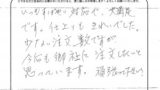 いつもすばやい対応で、大満足
です。仕上りもきれいでした。
少ない注文数ですが
今後も御社に注文したいと
思っています。頑張って下さい